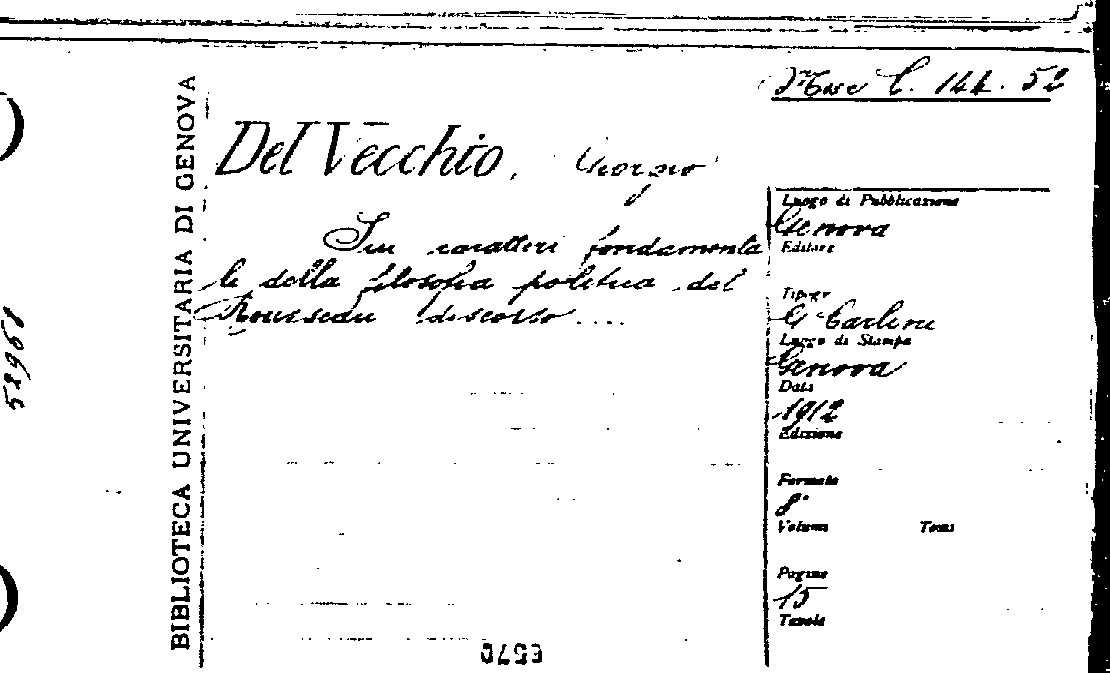 Misc C. 144. 52
BIBLIOTECA UNIVERSITARIA DI GENOVA
Del Vecchio, Giorgio
Sui caratteri fondamenta
li della filosofia politica del
Rousseau discorso....
Luogo di Pubblicazione
Genova
Editore
Tipogr
G Carlini
Luogo di Stampa
Genova
Data
1912
Edizione
Formato
8°
Volumi Tomi
Pagine
15
Tavole